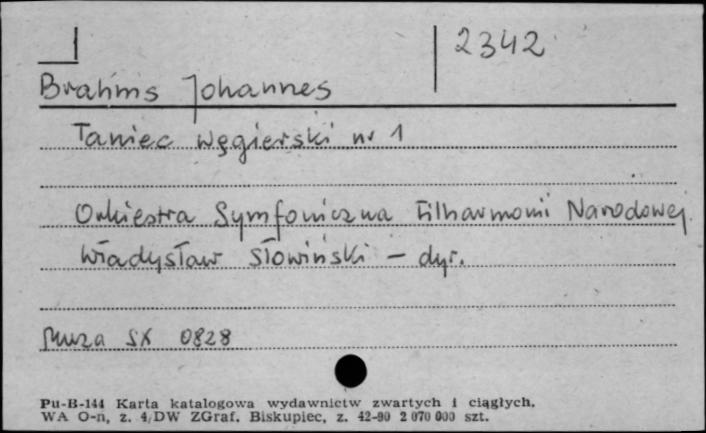 2342
Brahms Johannes
Taniec węgierski nr 1
Orkiestra Symfoniczna Filharmonii Narodowej
Władysław Słowiński - dyr.
Muza SX 0828
Pu-B-144 Karta katalogowa wydawnictw zwartych i ciągłych.
WA O-n, z. 4/DW ZGraf. Biskupiec, z. 42-90 2 070 000 szt.